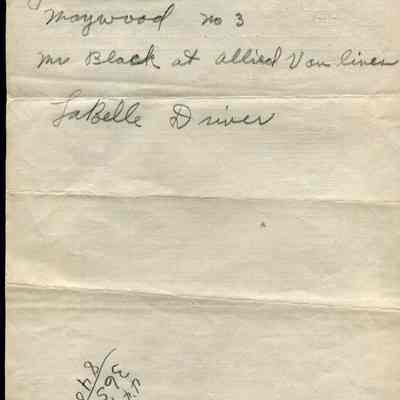 Maywood no 3
Mr Black at Allied Van lines
LaBelle Driver